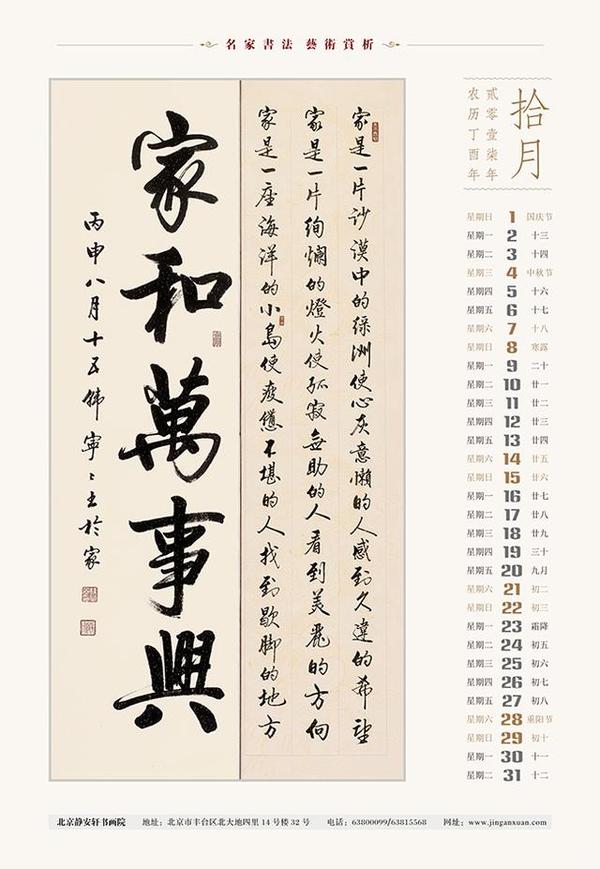 名家書法 藝術賞析
拾月
贰零壹柒年
农历丁酉年
家是一片沙漠中的绿洲使心灰意懒的人感到久違的希望
家是一片絢爛的燈火使孤寂無助的人看到美麗的方向
家是一座海洋的小島使疲憊不堪的人找到歇脚的地方
家和萬事興
丙申八月十五韩寧〻书於家
星期日 1 国庆节
星期一 2 十三
星期二 3 十四
星期三 4 中秋节
星期四 5 十六
星期五 6 十七
星期六 7 十八
星期日 8 寒露
星期一 9 二十
星期二 10 廿一
星期三 11 廿二
星期四 12 廿三
星期五 13 廿四
星期六 14 廿五
星期日 15 廿六
星期一 16 廿七
星期二 17 廿八
星期三 18 廿九
星期四 19 三十
星期五 20 九月
星期六 21 初二
星期日 22 初三
星期一 23 霜降
星期二 24 初五
星期三 25 初六
星期四 26 初七
星期五 27 初八
星期六 28 重阳节
星期日 29 初十
星期一 30 十一
星期二 31 十二
北京静安轩书画院 地址：北京市丰台区北大地四里14号楼32号 电话：63800099/63815568 网址：www.jinganxuan.com